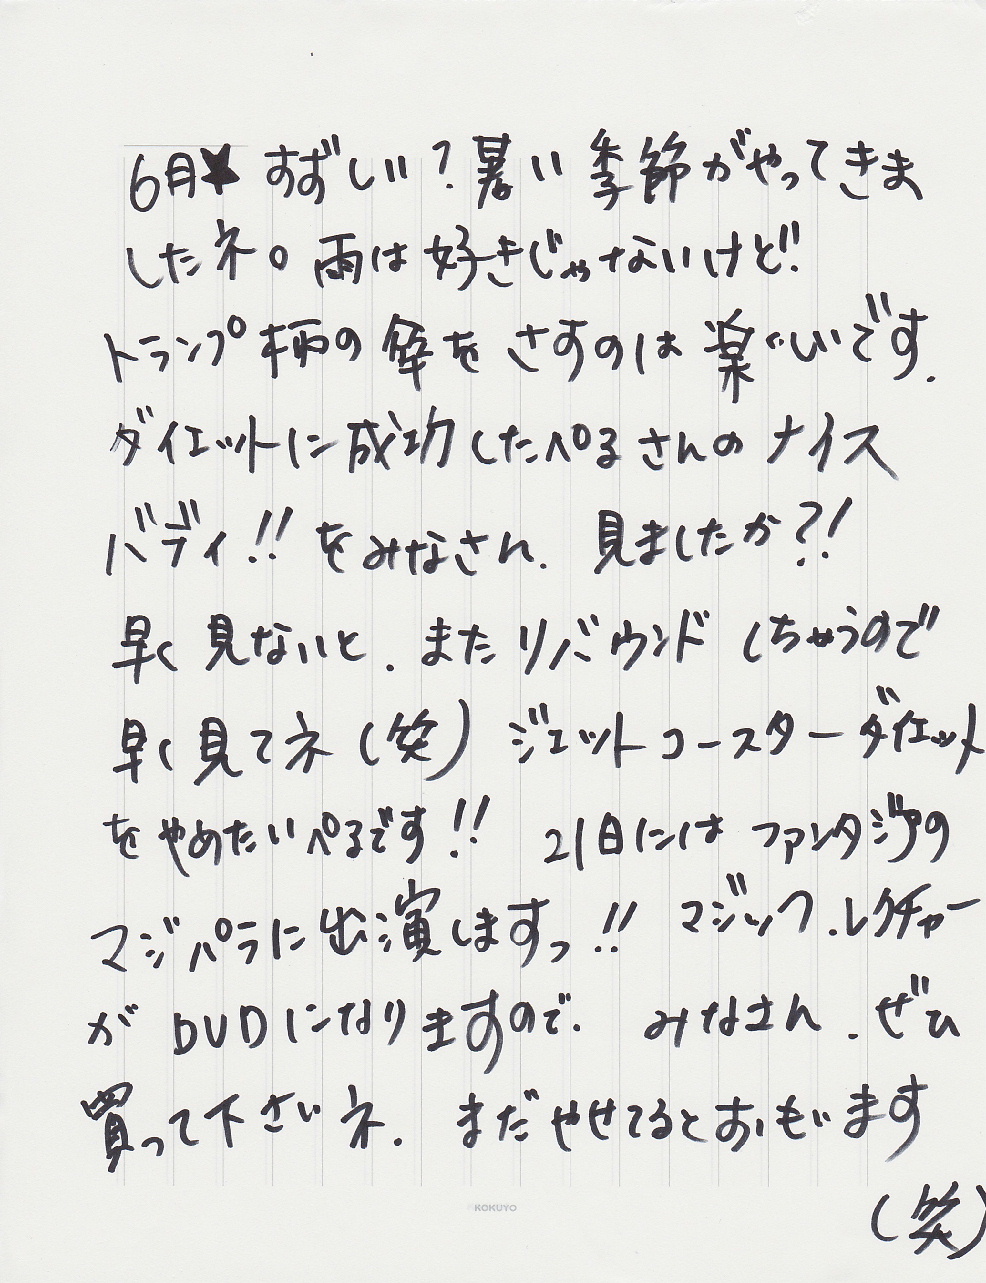 6月★ すずしい?暑い 季節がやってきま
したネ。雨は好きじゃないけど!!
トランプ柄の傘をさすのは楽しいです.
ダイエットに成功したぺるさんのナイス
バディ!!をみなさん、見ましたか?!
早く見ないと、またリバウンドしちゃうので
早く見てネ(笑)ジェットコースターダイエット
をやめたいぺるです!! 21日にはファンタジアの
マジパラに出演しますっ!! マジック.レクチャー
がDVDになりますので、みなさん、ぜひ
買って下さいネ. まだやせてるとおもいます
(笑)
KOKUYO